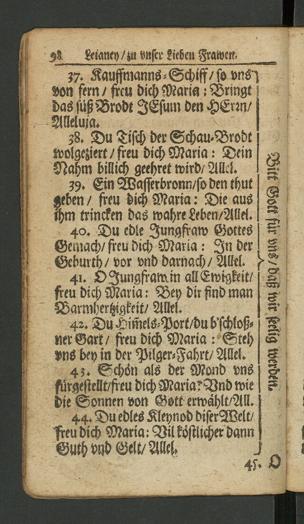 98 Letaney/ zu vnser Lieben Frawen.
37. Kauffmanns-Schiff/ so vns
von fern/ freu dich Maria: Bringt
das süß Brodt JEsum den HErrn/
Alleluja.
38. Du Tisch der Schau-Brodt
wolgeziert/ freu dich Maria: Dein
Nahm billich geehret wird/ All:l.
39. Ein Wasserbronn/ so den thut
geben/ freu dich Maria: Die aus
ihm trincken das wahre Leben/ Allel.
40. Du edle Jungfraw Gottes
Gemach/ freu dich Maria: In der
Geburth/ vor vnd darnach/ Allel.
41. O Jungfraw in all Ewigkeit/
freu dich Maria: Bey dir find man
Barmhertzigkeit/ Allel.
42. Du Him̃els-Port/ du b'schloß-
ner Gart/ freu dich Maria: Steh
vns bey in der Pilger-Fahrt/ Allel.
43. Schön als der Mond vns
fürgestellt/ freu dich Maria? Vnd wie
die Sonnen von Gott erwählt/ All.
44. Du edles Kleynod diser Welt/
freu dich Maria: Vil köstlicher dann
Guth vnd Gelt/ Allel.
45. O
Bitt Gott für vns/ daß wir seelig werden.